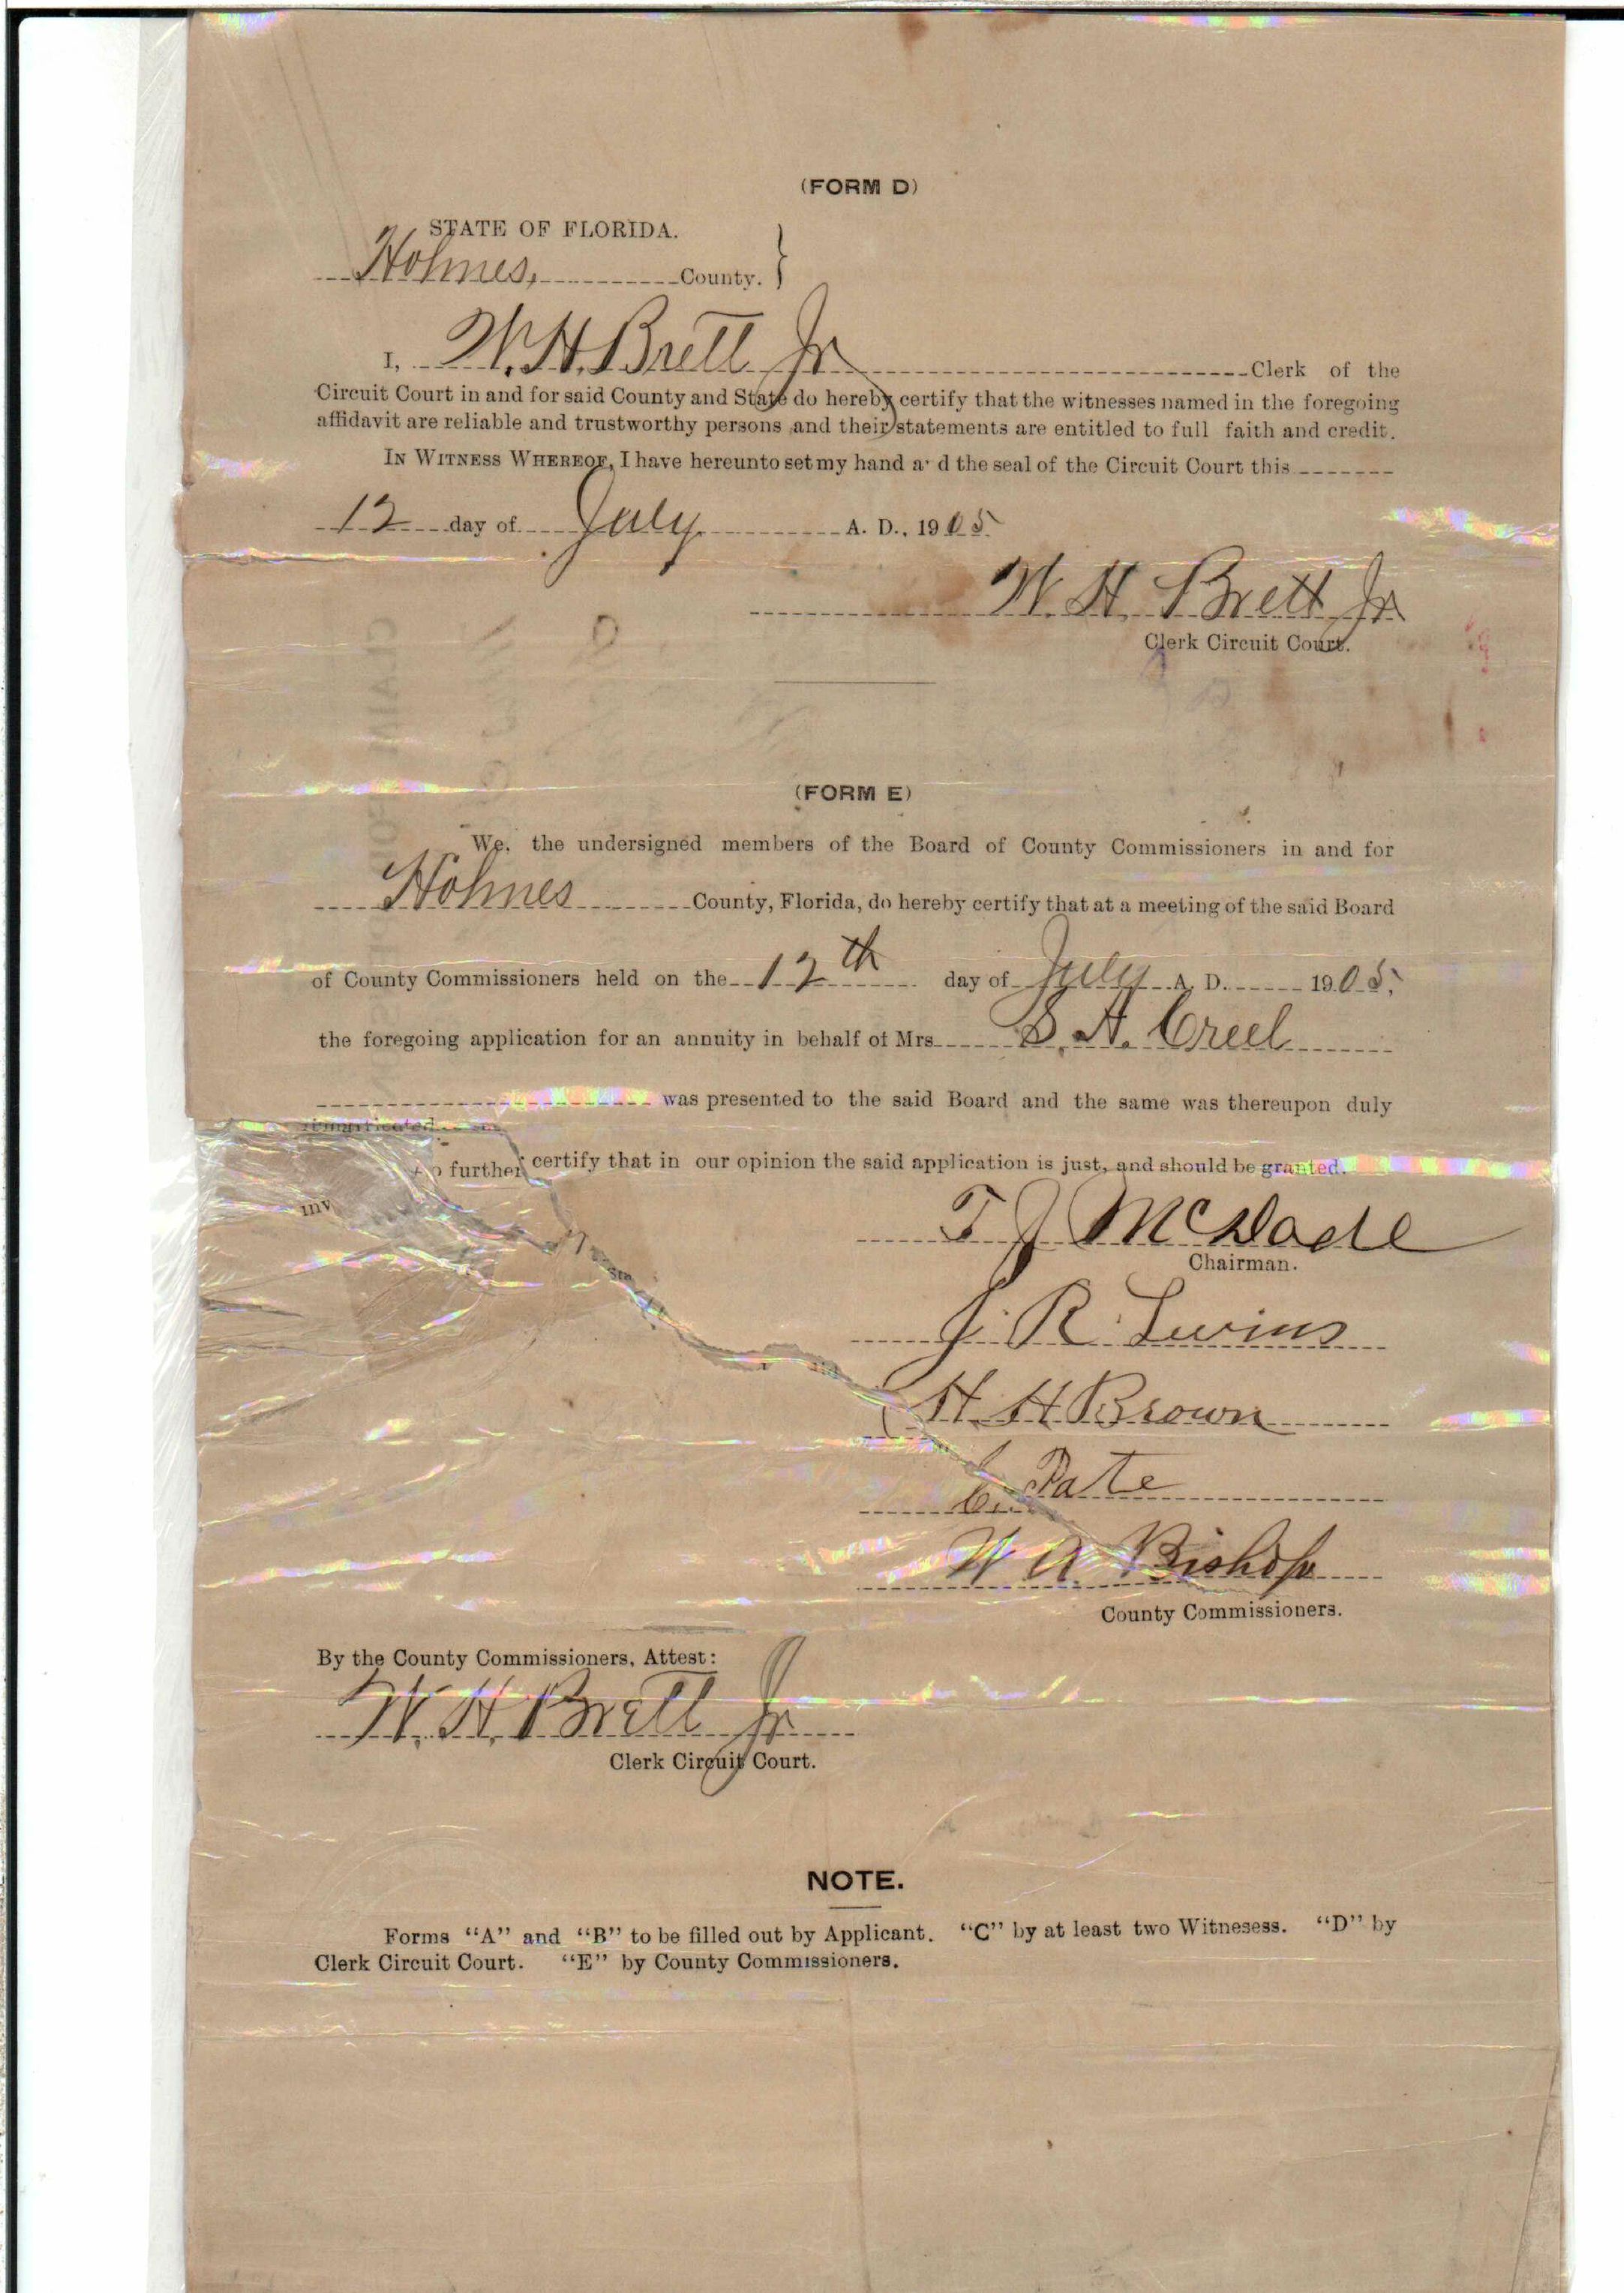 (FORM D)
STATE OF FLORIDA.
Holmes, County. }
I, W. H. Brett Jr Clerk of the
Circuit Court in and for said County and State do hereby certify that the witnesses named in the foregoing
affidavit are reliable and trustworthy persons and their statements are entitled to full faith and credit.
IN WITNESS WHEREOF, I have hereunto set my hand a d the seal of the Circuit Court this
12 day of July A. D., 1905
W. H. Brett Jr
Clerk Circuit Court.
(FORM E)
We, the undersigned members of the Board of County Commissioners in and for
Holmes County, Florida, do hereby certify that at a meeting of the said Board
of County Commissioners held on the 12th day of July A. D. 1905,
the foregoing application for an annuity in behalf of Mrs S. A. Creel
was presented to the said Board and the same was thereupon duly
further certify that in our opinion the said application is just, and should be granted.
inv
T J McDade
Chairman.
J. R.
H. H Brown
C. Pate
W A Bishop
County Commissioners.
By the County Commissioners, Attest:
W. H. Brett Jr
Clerk Circuit Court.
NOTE.
Forms "A" and "B" to be filled out by Applicant. "C" by at least two Witnesess. "D" by
Clerk Circuit Court. "E" by County Commissioners.